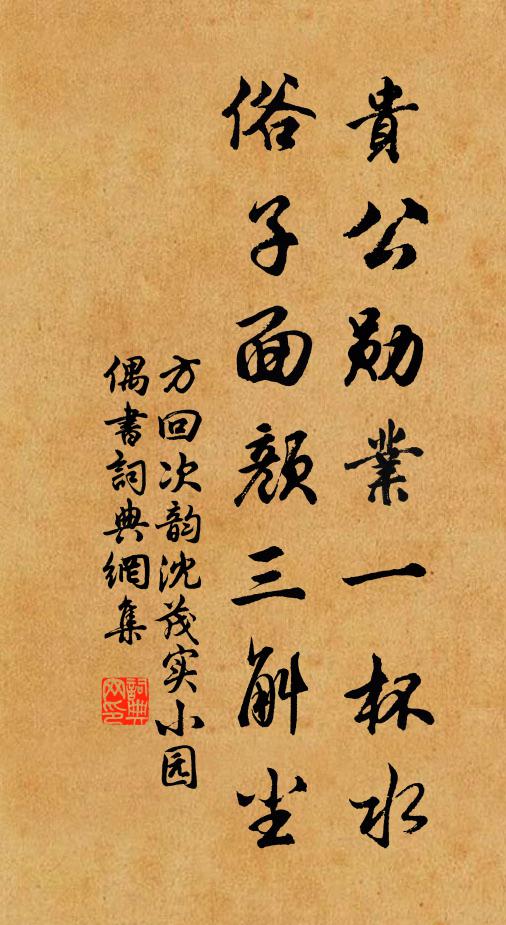 貴公勛業一杯水
俗子面顏三斛尘
方回次韵沈茂实小园
偶書詞典網集
詞典网印